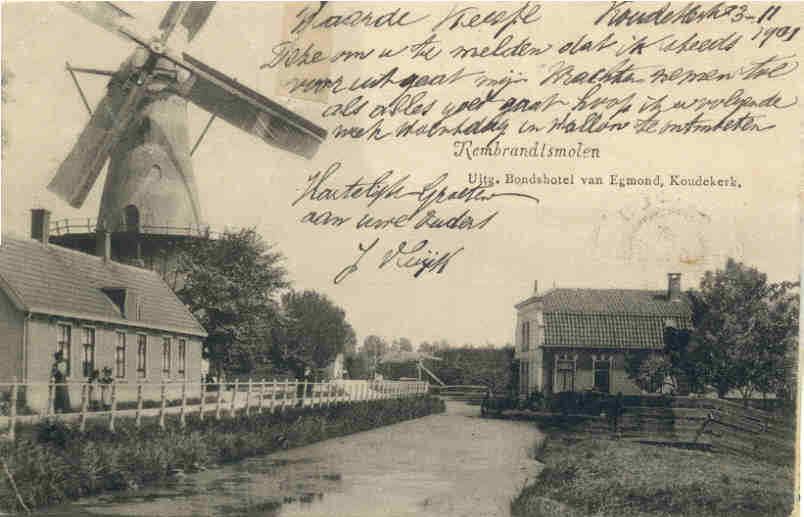 Waarde Keesje Koudekerk 3-11
1901
Deze om u te melden dat ik steeds
vooruit gaat mijn krachten nemen toe
als alles goed gaat hoop ik u volgende
week Woensdag in te ontmoeten
Rembrandtsmolen
Uitg. Bondshotel van Egmond, Koudekerk.
Hartelijke Groeten
aan uwe ouders
J